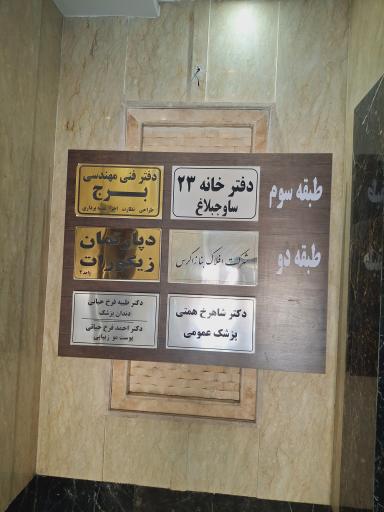 طبقه سوم
دفتر خانه ۲۳
ساوجبلاغ
دفتر فنی مهندسی
برج
طراحی نظارت اجرا نقشه برداری
طبقه دو
شرکت افلاک بنا زاگرس
دپارتمان
زیگورات
واحد ۲
دکتر شاهرخ همتی
پزشک عمومی
دکتر طیبه فرخ حیاتی
دندان پزشک
دکتر احمد فرخ حیاتی
پوست مو زیبایی